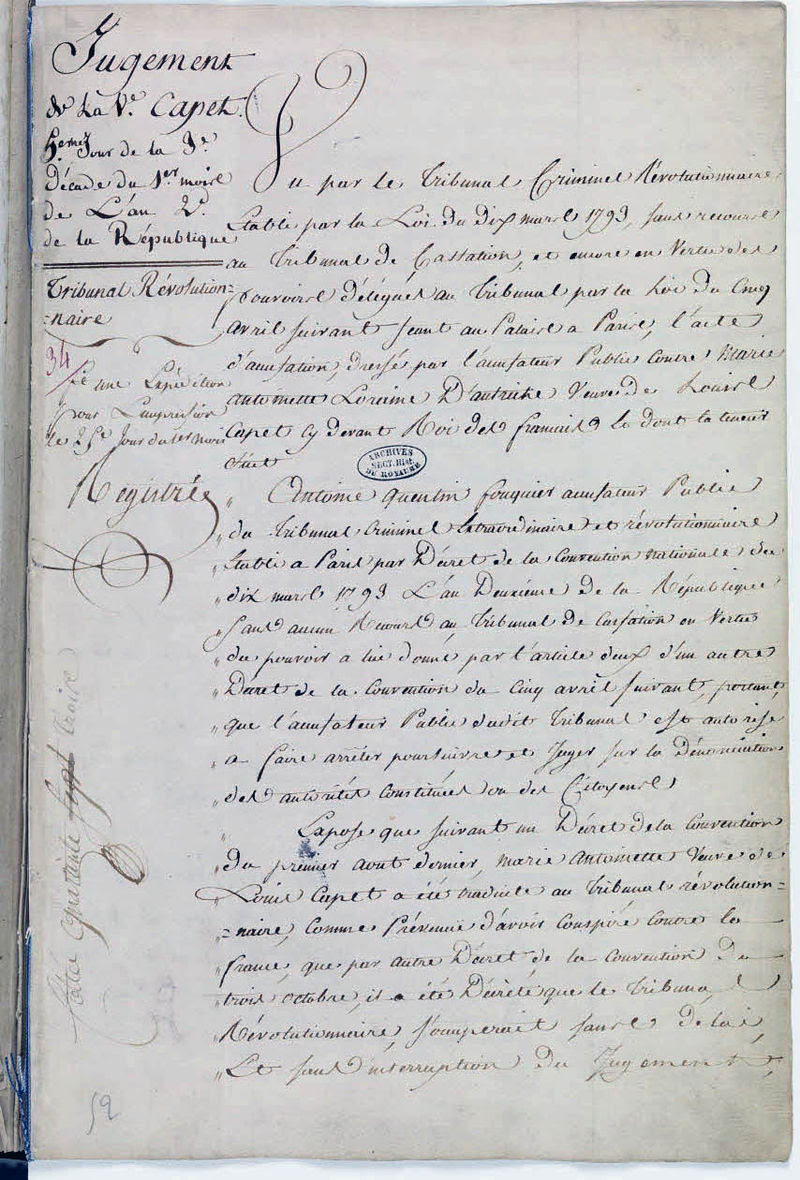 Jugement
de La Ve. Capet.
5eme. Jour de la 3e.
Décade du 1er mois
de L'an 2d.
de la République
Tribunal Révolution=
=naire
34
fit une Expédition
pour L'impression
le 25e Jour du 1er mois
Registrée
Vu par le Tribunal Criminel Révolutionnaire
Etabli par la Loi du dix mars 1793, sans recours
au Tribunal de Cassation, et encore en Vertu des
pouvoirs délégués au Tribunal par la Loi du Cinq
avril suivant seant au Palais a Paris, l'acte
d'accusation, dressés par l'accusateur Public Contre Marie
antoinette Loraine D'autriche Veuve de Louis
Capet cy devant Roi des francais la dont la teneur
suit
ARCHIVES
SECT. HIST.
DU ROYAUME
" Antoine quentin fouquier accusateur Public
" du Tribunal Criminel Extraordinaire et révolutionnaire
" Etabli a Paris par Décret de la Convention nationale du
" dix mars 1793 L'an Deuxieme de la République
" sans aucun Recours au Tribunal de Cassation en Vertu
" du pouvoir a lui donné par l'article deux d'un autre
" Décret de la Convention du Cinq avril suivant, portant,
" que l'accusateur Public dudit Tribunal est autorisé
" a faire arrêter poursuivre et Juger sur la Dénonciation
" des autorités Constituées ou des Citoyens
" Expose que suivant un Décret de la Convention
" du premier aout dernier, marie antoinette Veuve de
" Louis Capet a été traduite au Tribunal révolution=
" =naire, Comme Prévenue d'avoir Conspiré Contre la
" france, que par autre Décret de la Convention du
" trois octobre, il a été Décrété que le Tribunal
" Révolutionnaire, s'occuperait sans delai,
" Et sans d'interruption du Jugement,
59